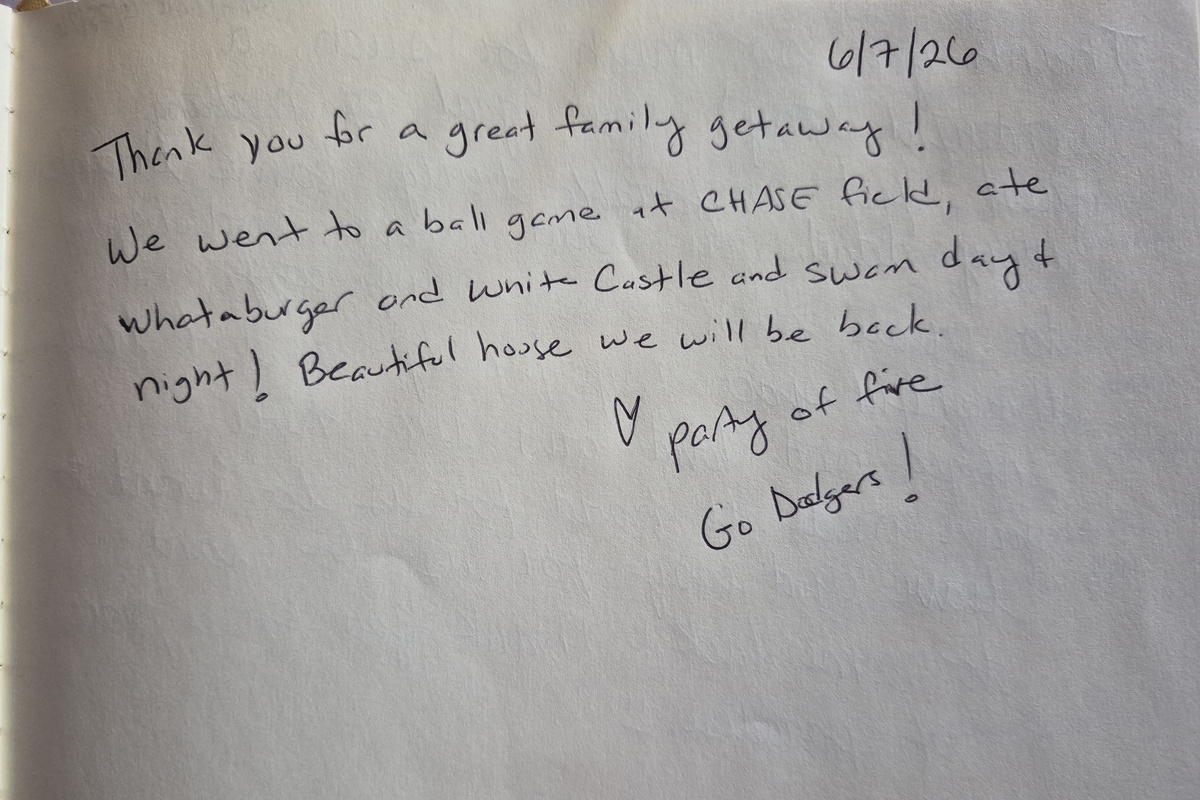 6/7/26
Thank you for a great family getaway!
We went to a ball game at CHASE field, ate
whataburger and white Castle and swam day &
night! Beautiful house we will be back.
♡ party of five
Go Dodgers!